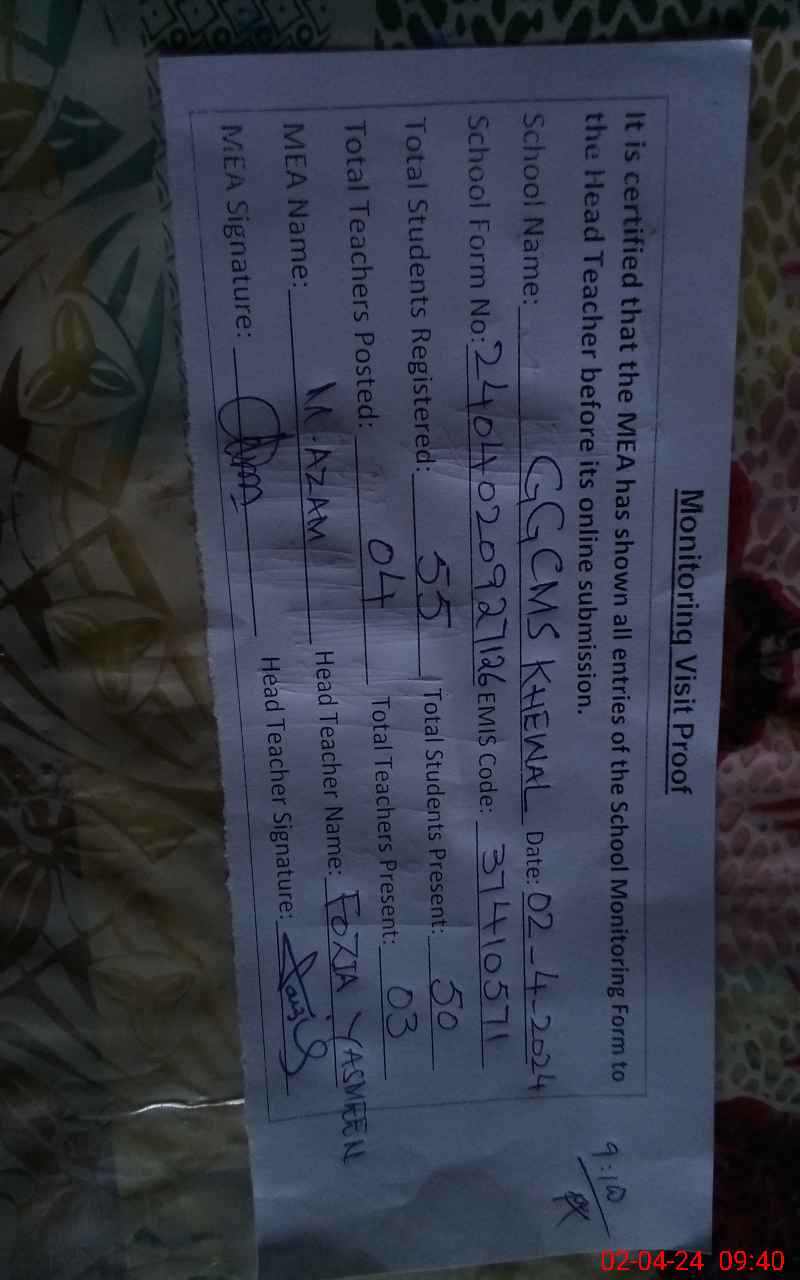 Monitoring Visit Proof
It is certified that the MEA has shown all entries of the School Monitoring Form to
the Head Teacher before its online submission.
School Name: GGCMS KHEWAL Date: 02-4-2024
School Form No: 2404020927126 EMIS Code: 37410571
Total Students Registered: 55 Total Students Present: 50
Total Teachers Posted: 04 Total Teachers Present: 03
MEA Name: M. AZAM Head Teacher Name: FOZIA YASMEEN
MEA Signature: Head Teacher Signature:
9:10
02-04-24 09:40